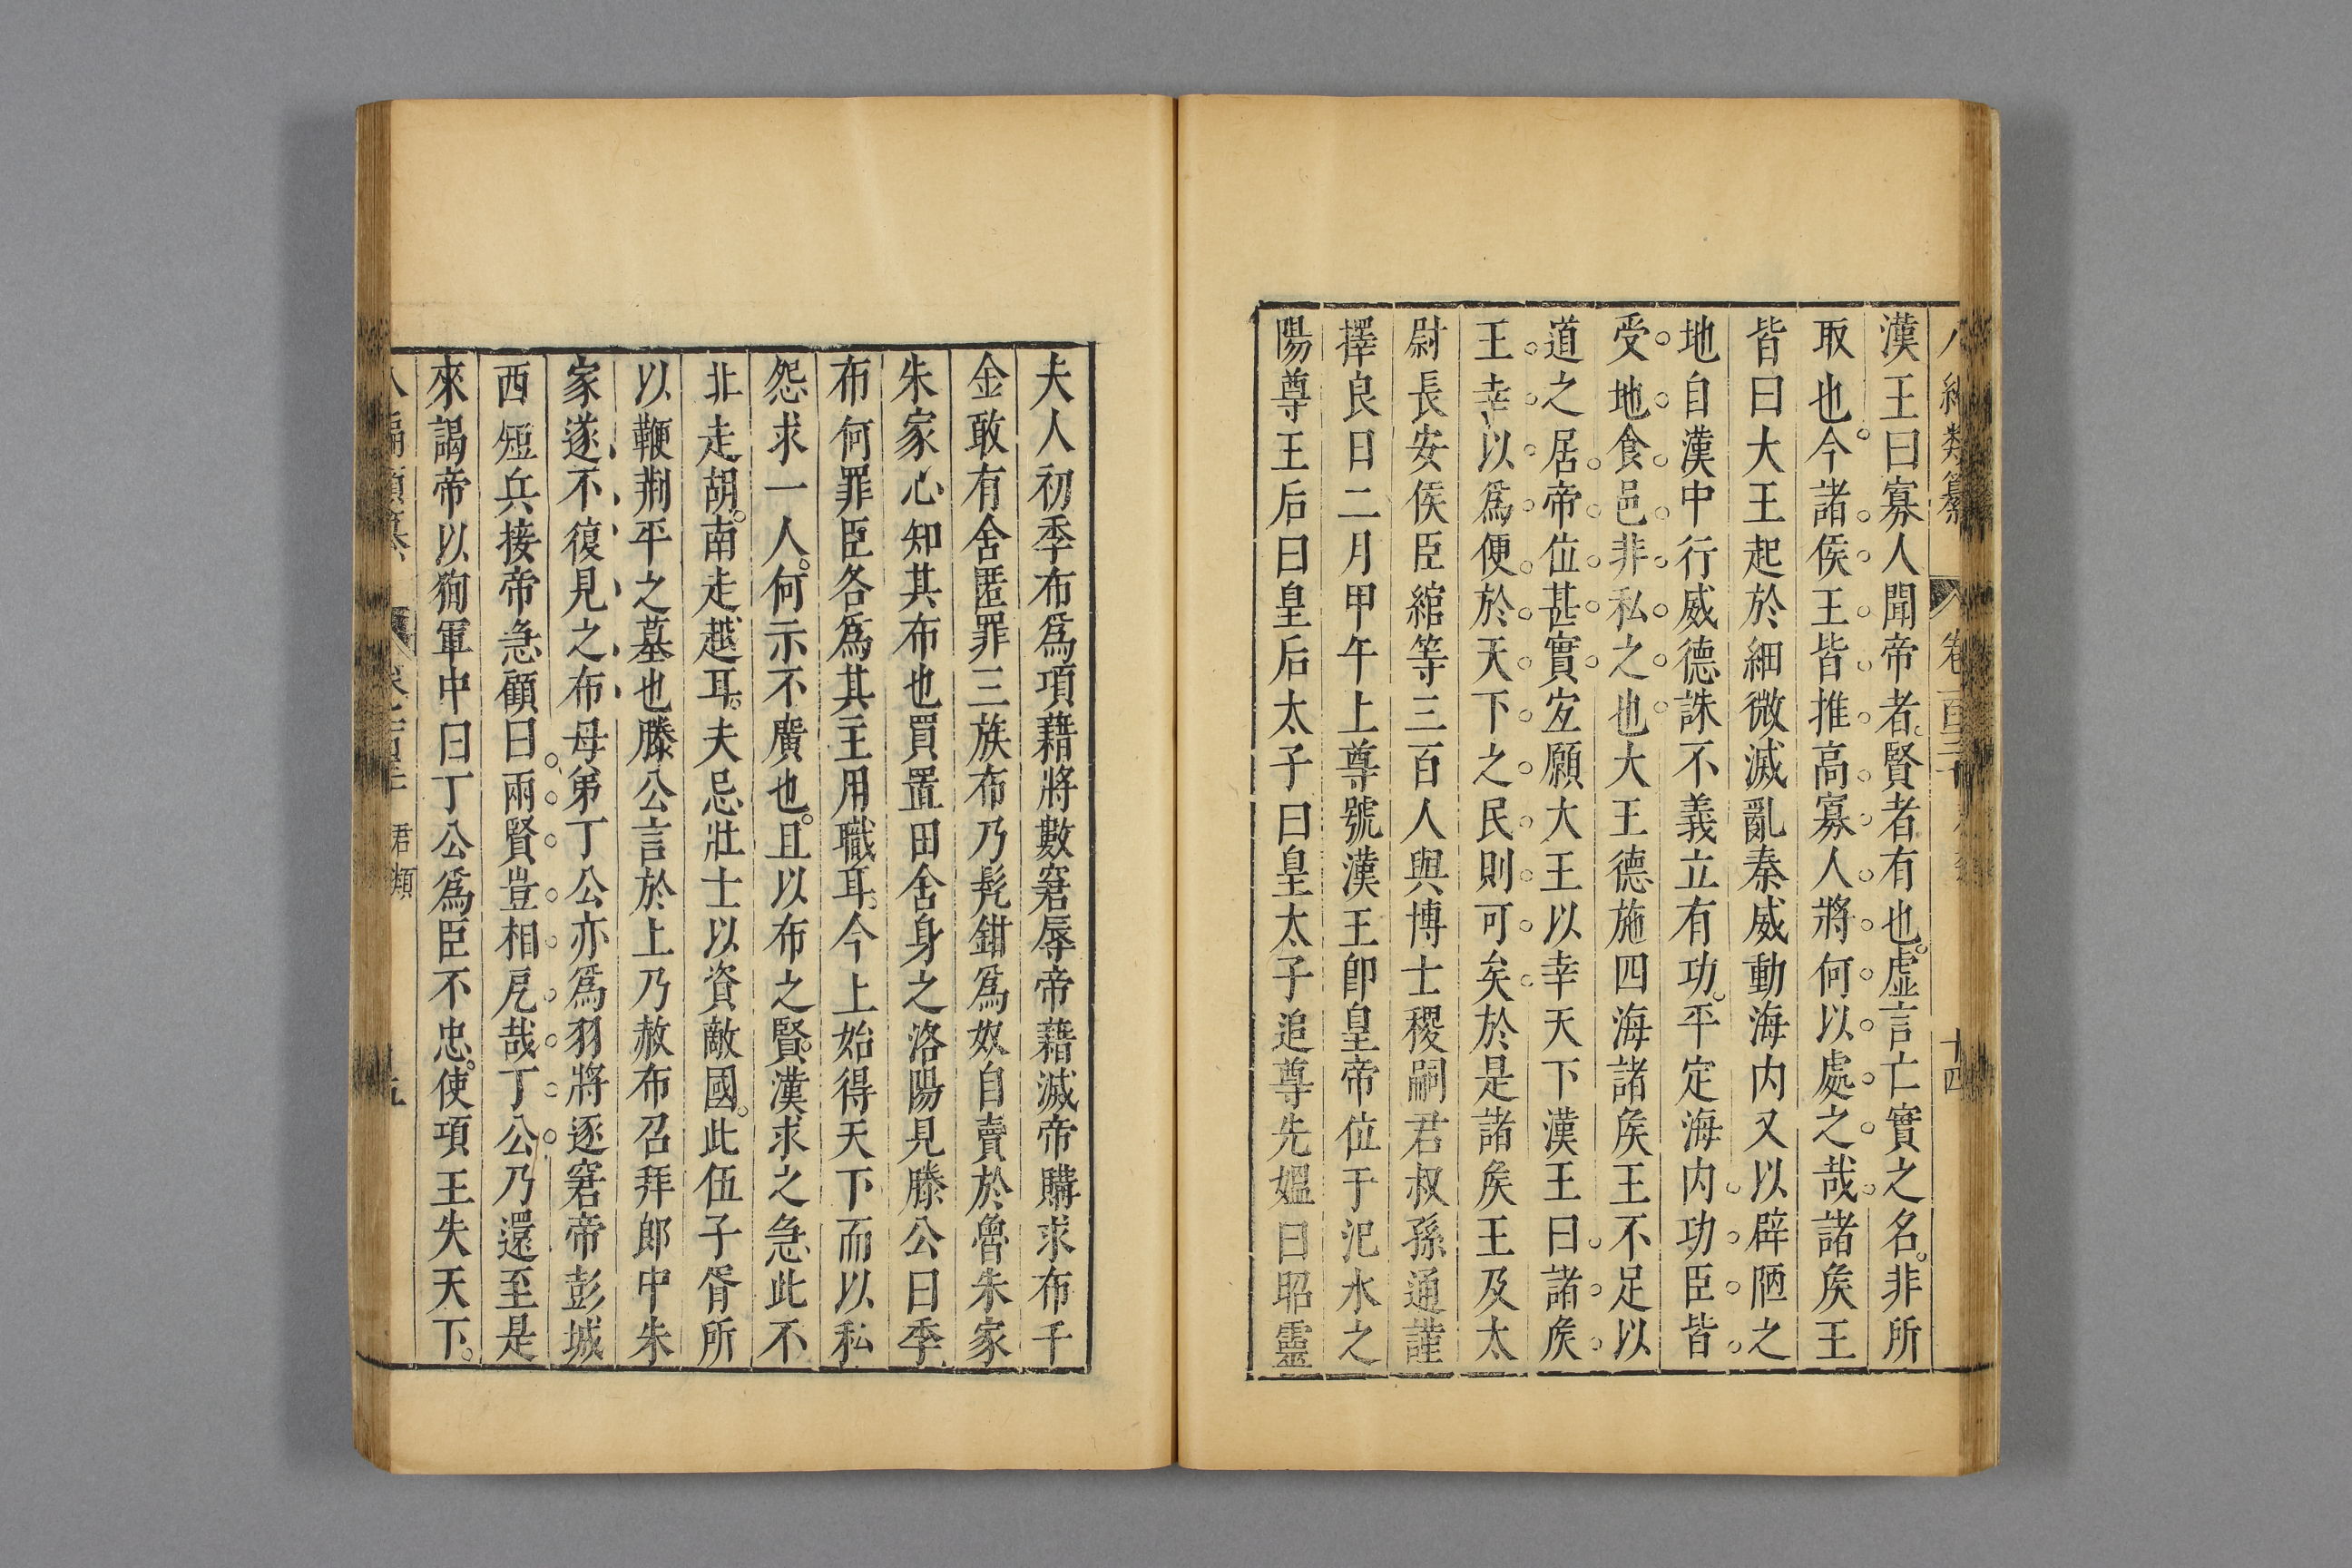 漢王曰寡人聞帝者賢者有也虛言亡實之名非所
取也今諸侯王皆推高寡人將何以處之哉諸矦王
皆曰大王起於細微滅亂秦威動海内又以辟陋之
地自漢中行威德誅不義立有功平定海内功臣皆
受地食邑非私之也大王德施四海諸矦王不足以
道之居帝位甚實宐願大王以幸天下漢王曰諸矦
王幸以爲便於天下之民則可矣於是諸矦王及太
尉長安侯臣綰等三百人與博士稷嗣君叔孫通謹
擇良日二月甲午上尊號漢王卽皇帝位于汜水之
陽尊王后曰皇后太子曰皇太子追尊先媼曰昭靈
夫人初季布爲項藉將數窘辱帝藉滅帝購求布千
金敢有舍匿罪三族布乃髠鉗爲奴自賣於魯朱家
朱家心知其布也買置田舍身之洛陽見滕公曰季
布何罪臣各爲其主用職耳今上始得天下而以私
怨求一人何示不廣也且以布之賢漢求之急此不
北走胡南走越耳夫忌壯士以資敵國此伍子胥所
以鞭荆平之墓也滕公言於上乃赦布召拜郎中朱
家遂不復見之布母弟丁公亦爲羽將逐窘帝彭城
西短兵接帝急顧曰兩賢豈相戹哉丁公乃還至是
來謁帝以狥軍中曰丁公爲臣不忠使項王失天下